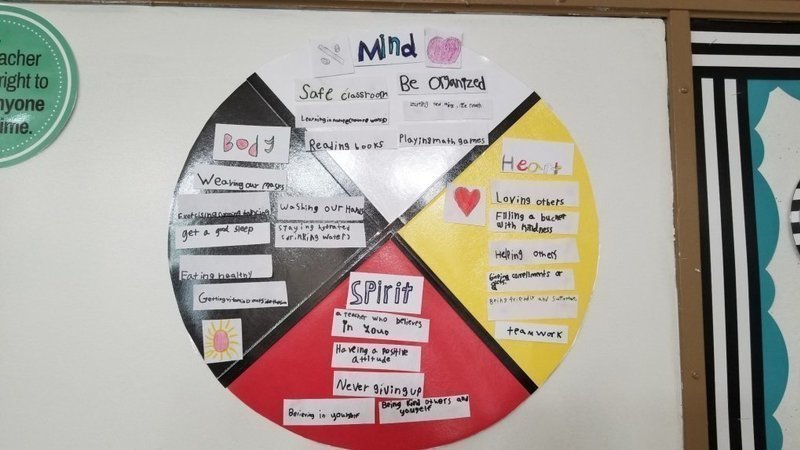 acher
right to
nyone
ime.
Mind
Safe classroom
Be Organized
Learning in nature
Reading books
Playing math games
Body
Wearing our masks
Washing our Hands
get a good sleep
Staying hydrated
(drinking water)
Eating healthy
Heart
Loving others
Filling a bucket
with kindness
Helping others
Giving compliments or
Being friendly and
team work
Spirit
a teacher who believes
in you
Having a positive
attitude
Never giving up
Believing in yourself
Being kind others and
yourself